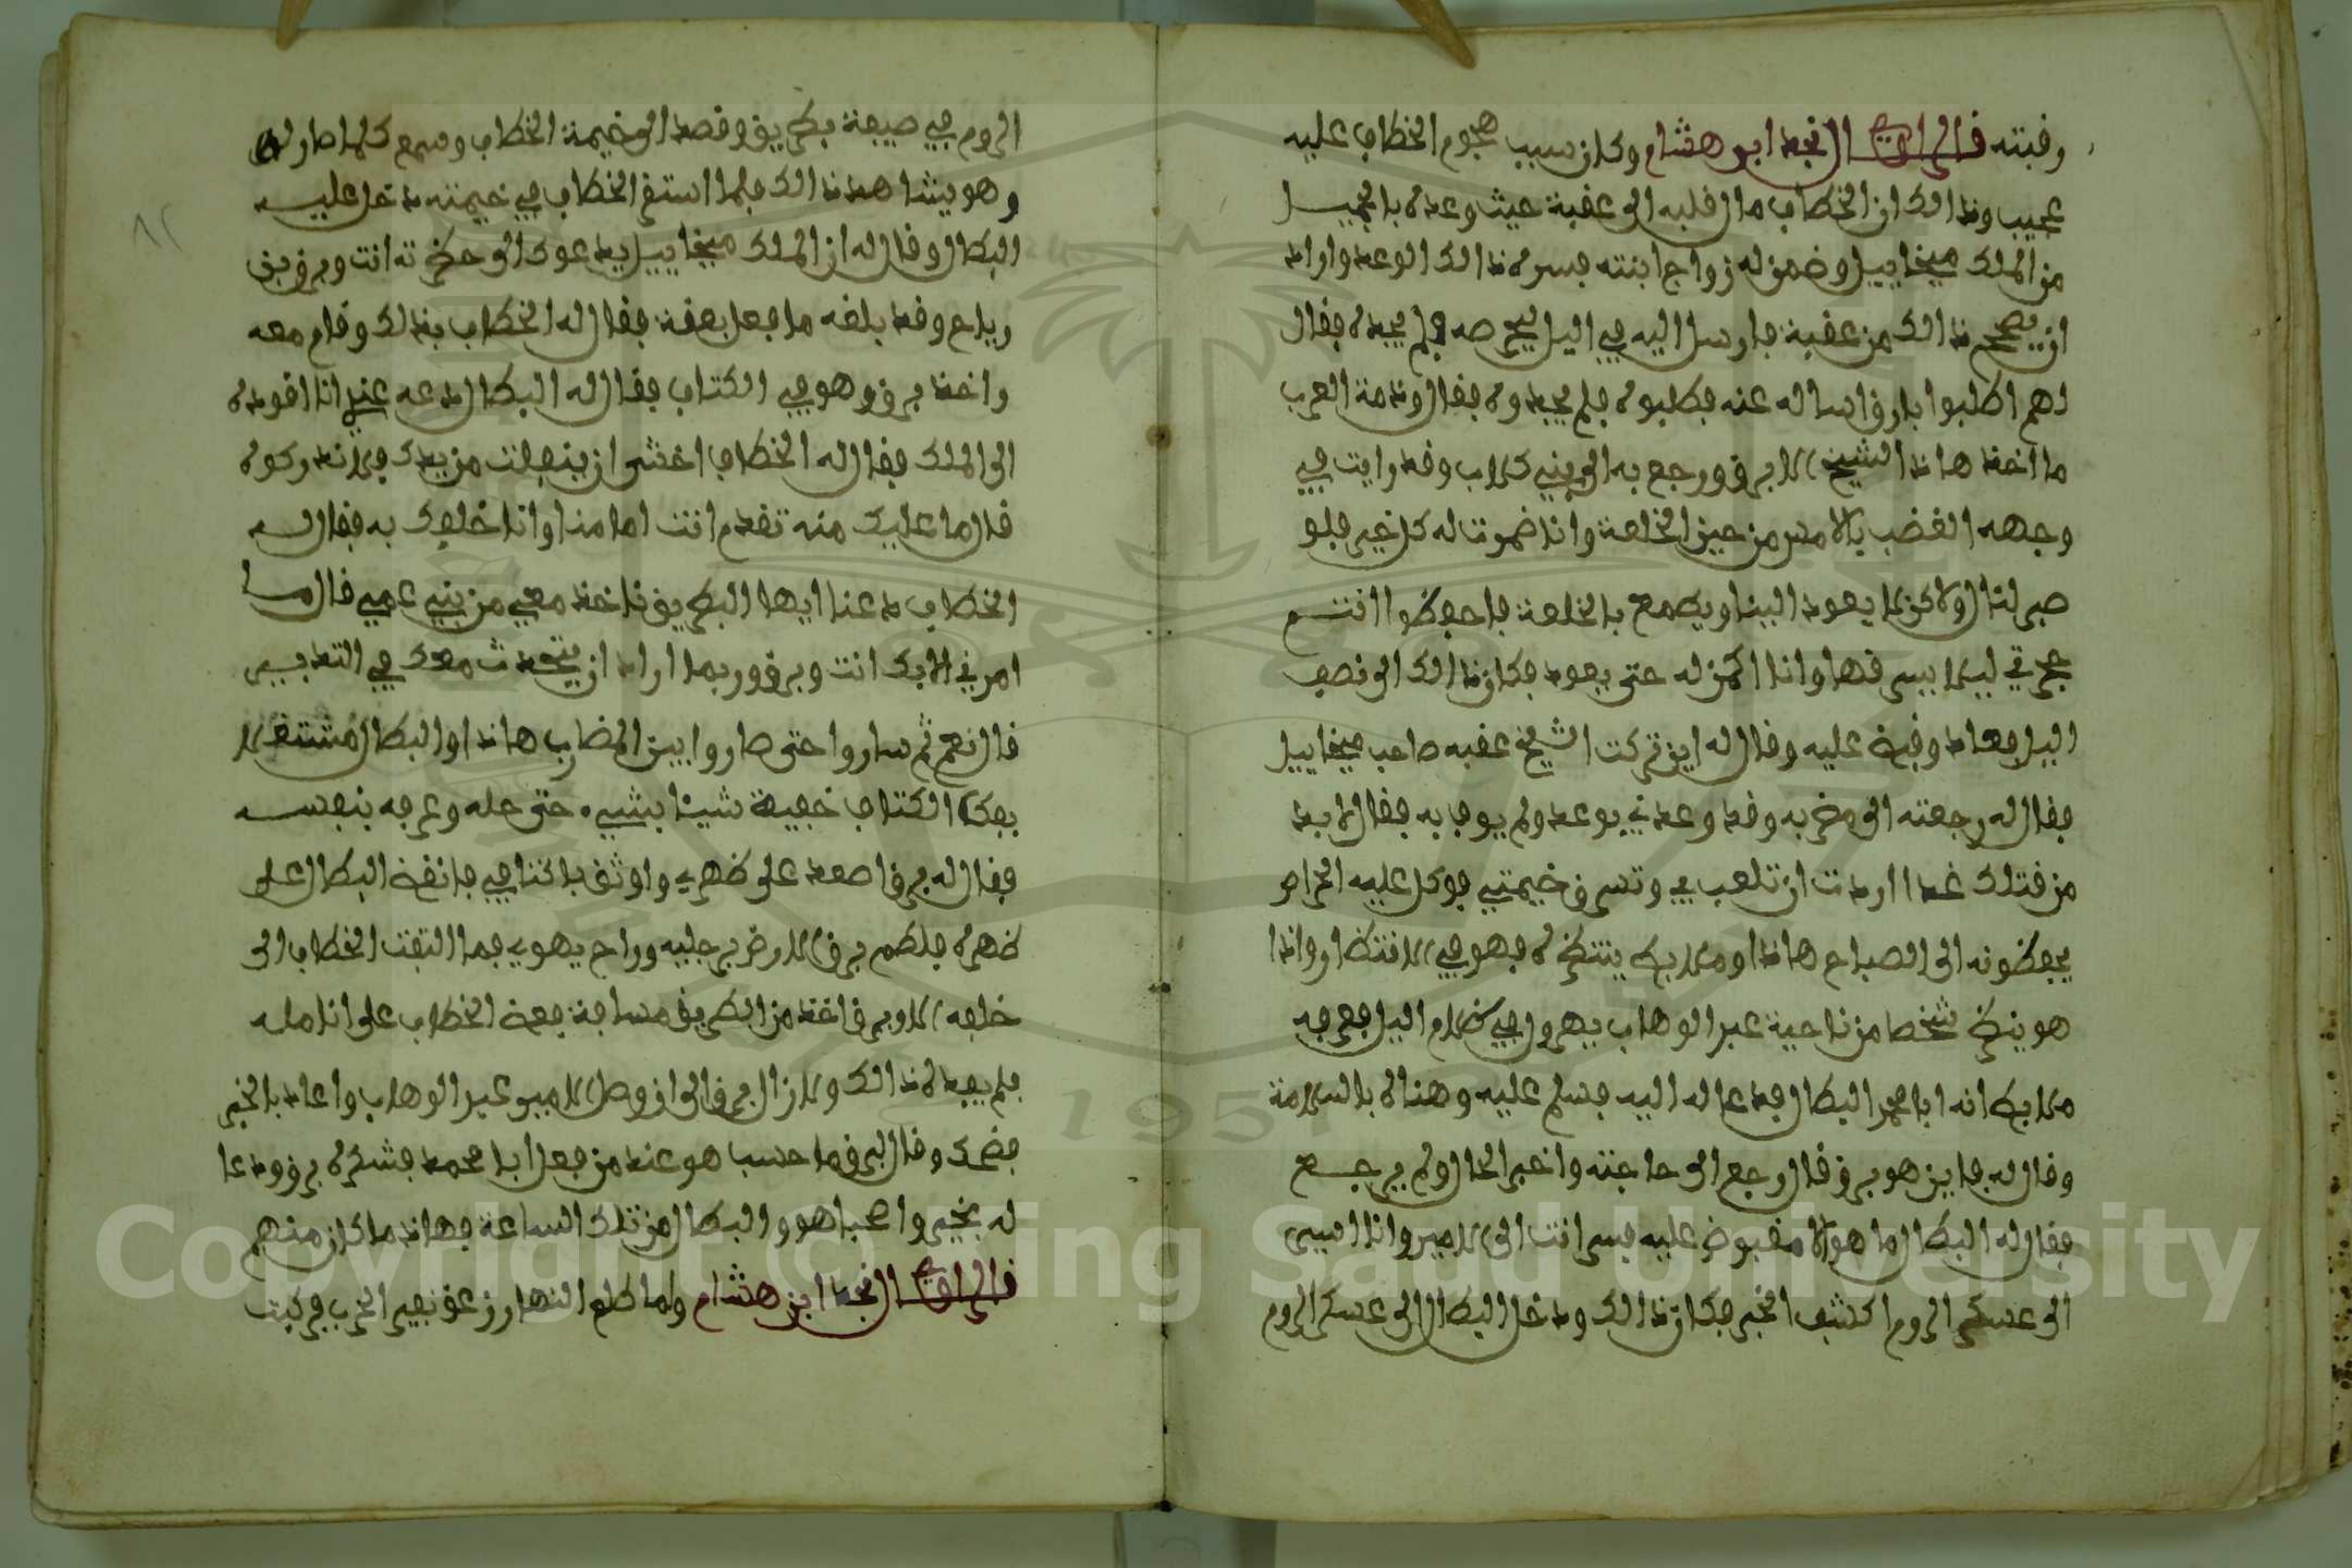 رقبته قال الراوي النجد ابو هشام وكان سبب هجوم الخطاب عليه
عجيب وذالك ان الخطاب مال قلبه الى عقبة حيث وعده بالجميل
من الملك ميخاييل وضمن له زواج ابنته فسره ذالك الوعد واراد
ان يصحح ذالك من عقبة فارسل اليه في اليل ليحرصه فلم يجده فقال
لهم اطلبوا بارق اساله عنه فطلبوه فلم يجدوه فقال وذمة العرب
ما اخذ هاذا الشيخ الا برق ورجع به الى بني كلاب وقد رايت في
وجهه الغضب بالامس من حين الخلعة وانا ضمرت له كل خير فلو
صبر لنال ولاكن لا يعود الينا ويطمع بالخلعة فاحفظوا انتم
حجرتي ليلا يسرقها وانا اكمن له حتى يعود فكان ذالك الى نصف
اليل فعاد وقبض عليه وقال له اين تركت الشيخ عقبه صاحب ميخاييل
فقال له رجعته الى مضربه وقد وعدني بوعد ولم يوف به فقال لا بد
من قتلك غدا اردت ان تلعب بي وتسرق خيمتي فوكل عليه الحراص
يحفظونه الى الصباح هاذا وملاعب ينتظره فهو في الانتظار واذا
هو ينظر شخصا من ناحية عبد الوهاب يهرول في ظلام اليل فعرفه
ملاعب انه ابا محمد البطال فدعا له اليه فسلم عليه وهناه بالسلامة
وقال له فاين هو برق قال رجع الى حاجته واخبر الحال ولم يرجع
فقال له البطال ما هو الا مقبوض عليه فسر انت الى الامير وانا اسير
الى عسكر الروم اكشف الخبر فكان ذالك ودخل البطال الى عسكر الروم
الروم في صيفة بطريق وقصد الى خيمة الخطاب وسمع كلما صار له
وهو يشاهد ذالك فلما استقر الخطاب في خيمته دخل عليه
البطال وقال له ان الملك ميخاييل يدعوك الى حضرته انت وبرق بن
رياح وقد بلغه ما فعل بعقبة فقال له الخطاب بذلك وقام معه
واخذ برق وهو في الكتاف فقال له البطال دعه عندي انا اقوده
الى الملك فقال له الخطاب اخشى ان ينفلت من يدك فلا تدركوه
قال ما عليك منه تقدم انت امامنا وانا خلفك به فقال له
الخطاب دعنا ايها البطريق ناخذ معي من بني عمي قال ما
امرني الا بك انت وبرق وربما اراد ان يتحدث معك في التدبير
قال نعم ثم ساروا حتى صاروا بين المضارب هاذا والبطال مشتغلا
بفك الكتاف خفية شيئا بشيء حتى حله وعرفه بنفسه
فقال له برق اصعد على ظهري واوثق باكتافي فانقض البطال على
ظهره فلطم برق الارض برجليه وراح يهوي فما التفت الخطاب الى
خلفه الا وبرق اخذ من الطريق مسافة فعض الخطاب على انامله
فلم يفده ذالك ولا زال برق الى ان وصل للامير عبد الوهاب واعاد بالخبر
فضحك وقال لبرق ما حسب هو عند من فعل ابا محمد فشكره برق ودعا
له بخير واصبحا هو والبطال من تلك الساعة فهاذا ما كان منهم
قال الراوي النجد ابن هشام ولما طلع النهار زعق نفير الحرب فركبت